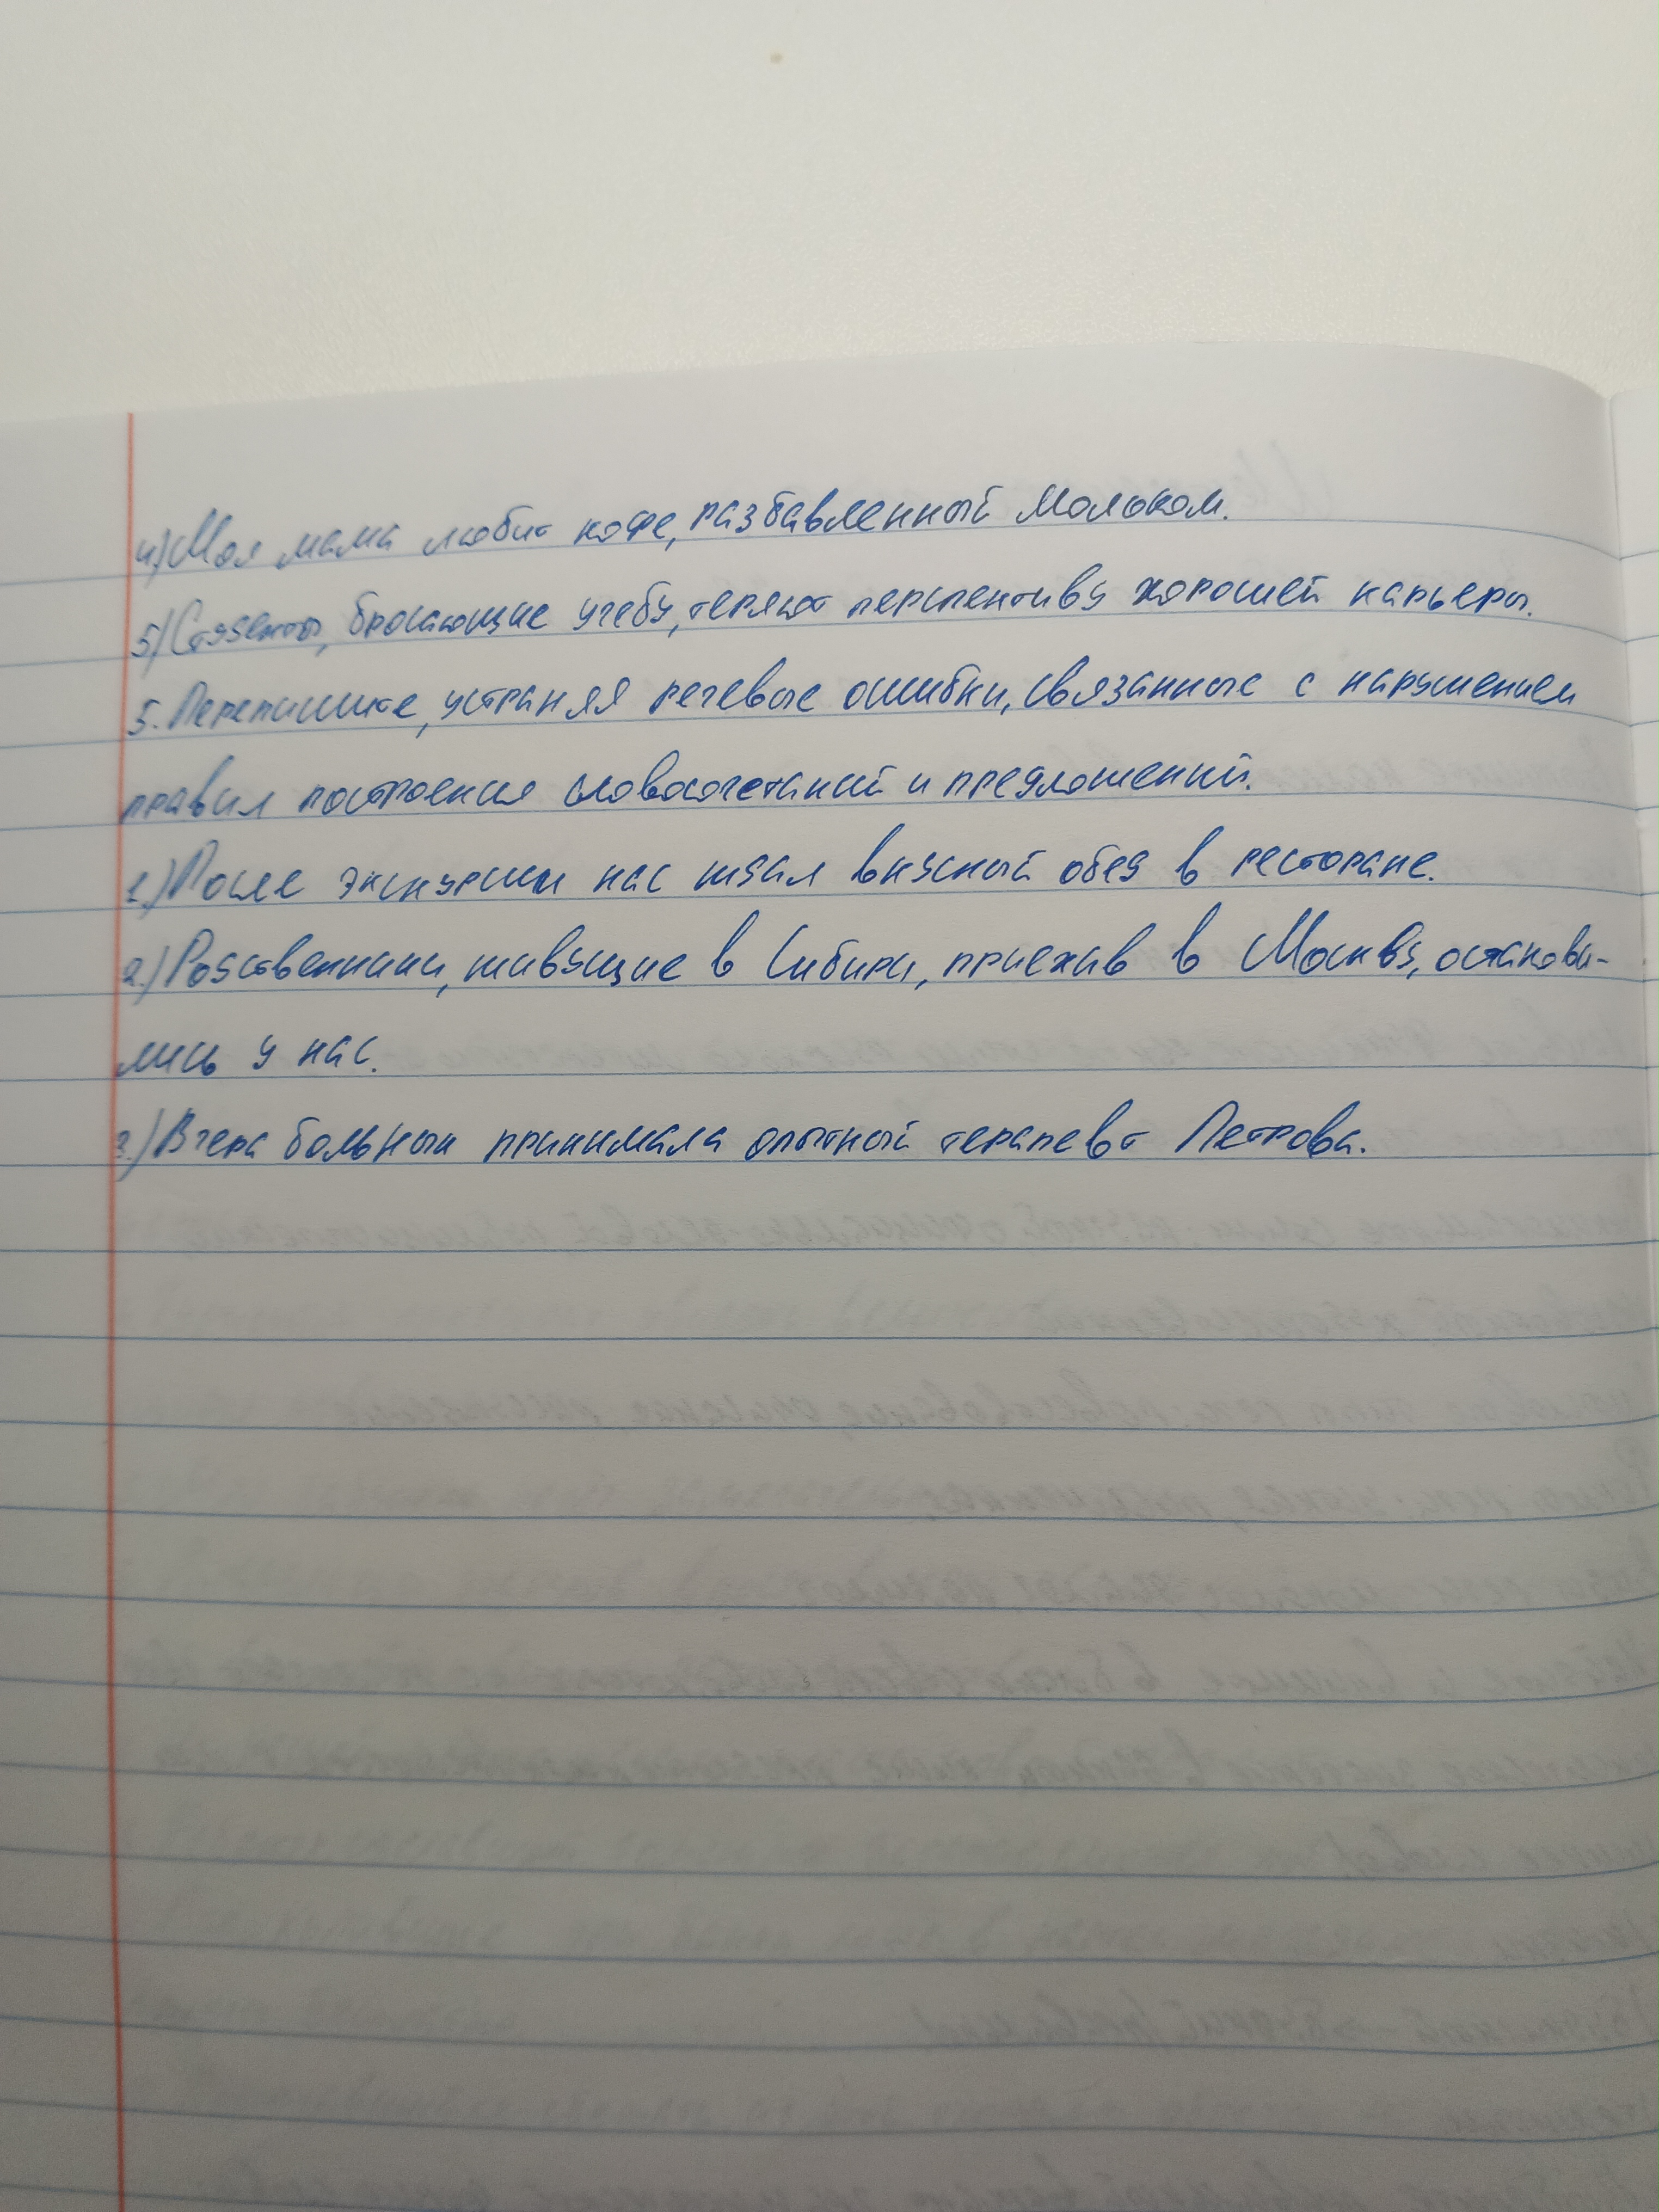 4) Моя мама любит кофе, разбавленный молоком.
5) Студенты, бросающие учебу, теряют перспективу хорошей карьеры.
5. Перепишите, устраняя речевые ошибки, связанные с нарушением
правил построения словосочетаний и предложений.
1.) После экскурсии нас ждал вкусный обед в ресторане.
2.) Родственники, живущие в Сибири, приехав в Москву, останови-
лись у нас.
3.) Вчера больных принимала опытный терапевт Петрова.